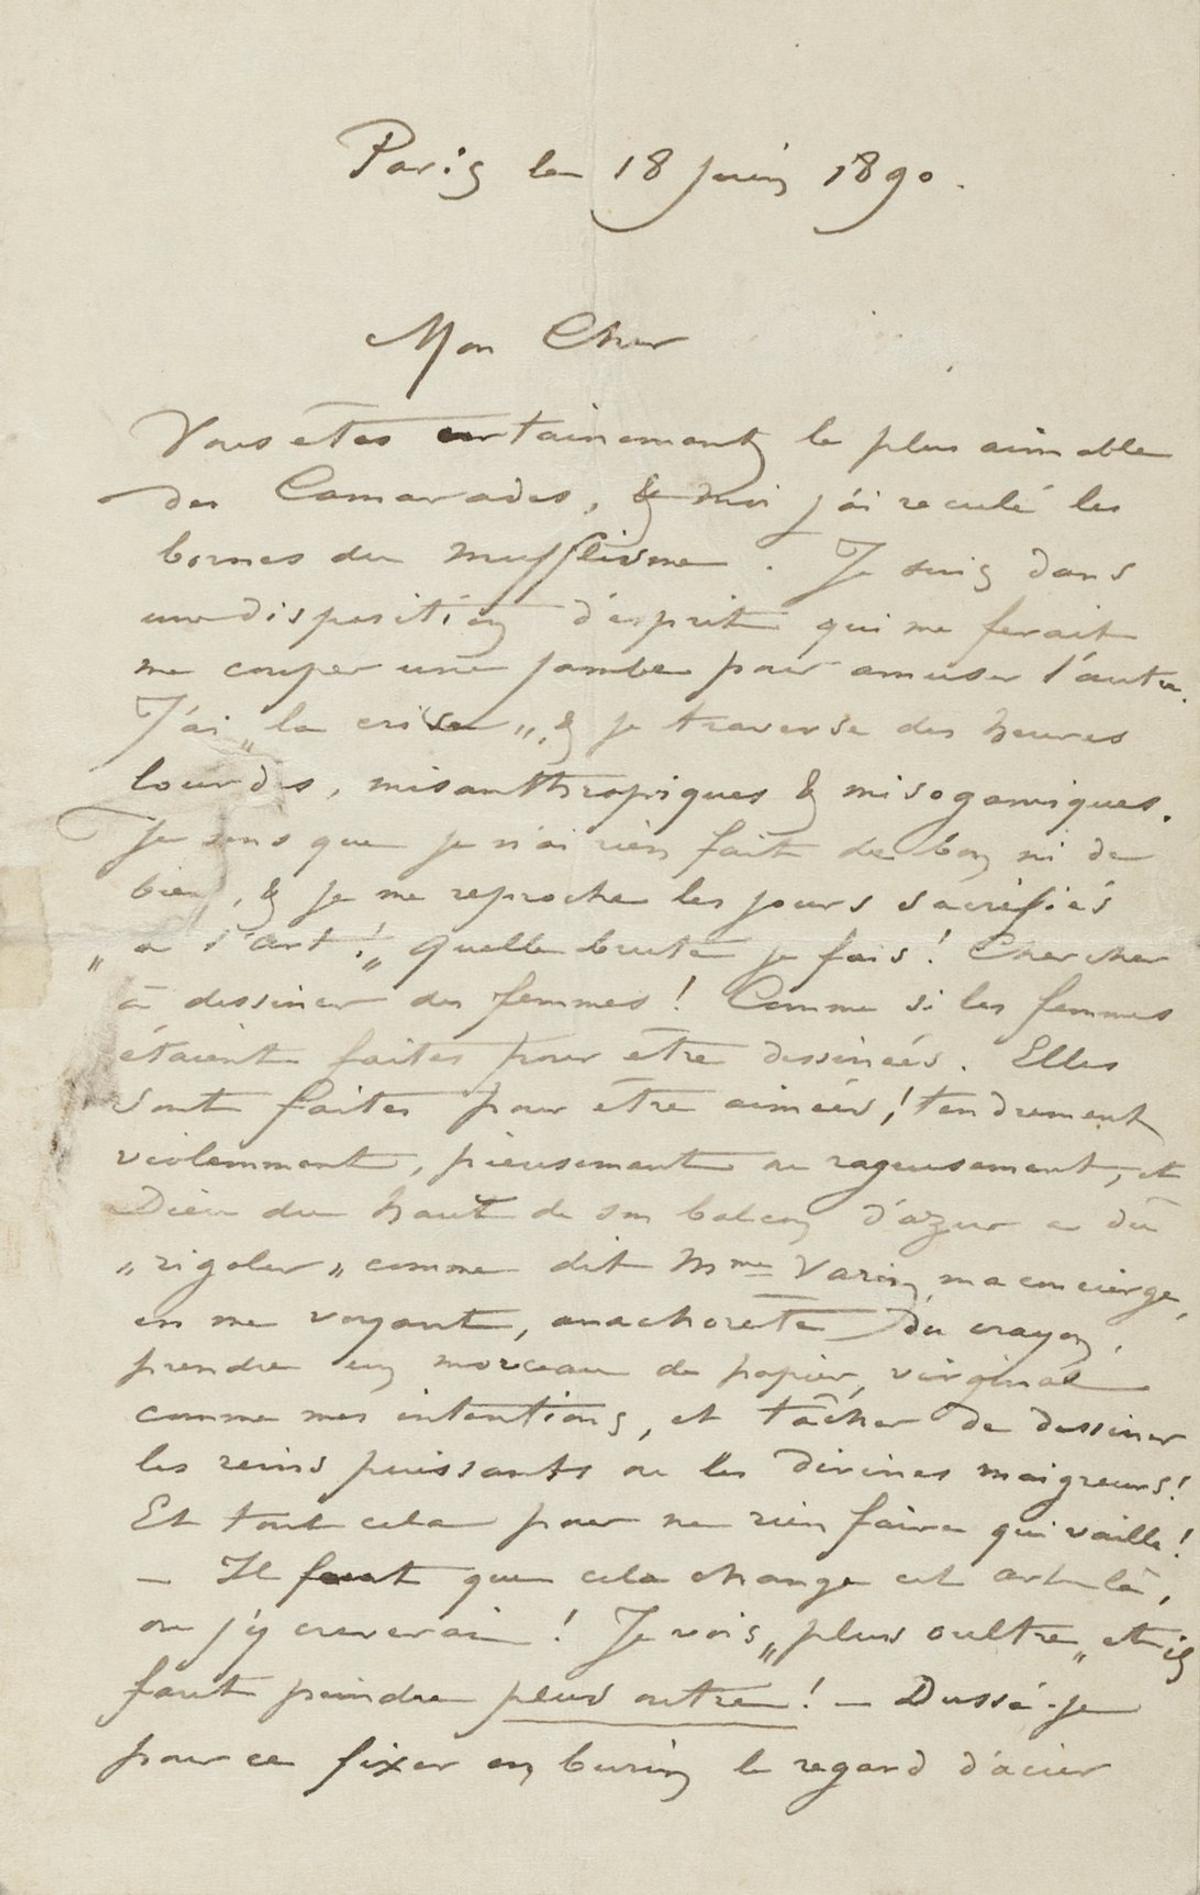 Paris le 18 juin 1890.
Mon Cher
Vous êtes certainement le plus aimable
des Camarades, & moi j'ai reculé les
bornes du mufflisme. Je suis dans
une disposition d'esprit qui me ferait
me couper une jambe pour amuser l'autre.
J'ai „la crise„, & je traverse des heures
lourdes, misanthropiques & misogamiques.
Je sens que je n'ai rien fait de bon ni de
bien, & je me reproche les jours sacrifiés
„a l'art!„ quelle brute je fais! Chercher
à dessiner des femmes! Comme si les femmes
étaient faites pour etre dessinées. Elles
sont faites pour être aimées! tendrement
violemment, pieusement ou rageusement, et
Dieu du haut de son balcon d'azur a dû
„rigoler„ comme dit Mme Varin, ma concierge,
en me voyant, anachorète du crayon,
prendre un morceau de papier, virginal
comme mes intentions, et tâcher de dessiner
les reins puissants ou les divines maigreurs!
Et tout cela pour ne rien faire qui vaille!
– Il faut que cela change cet art là,
ou j'y creverai! Je vois „plus oultre„ et il
faut peindre plus outre! – Dussé-je
pour ce fixer en burin le regard d'acier